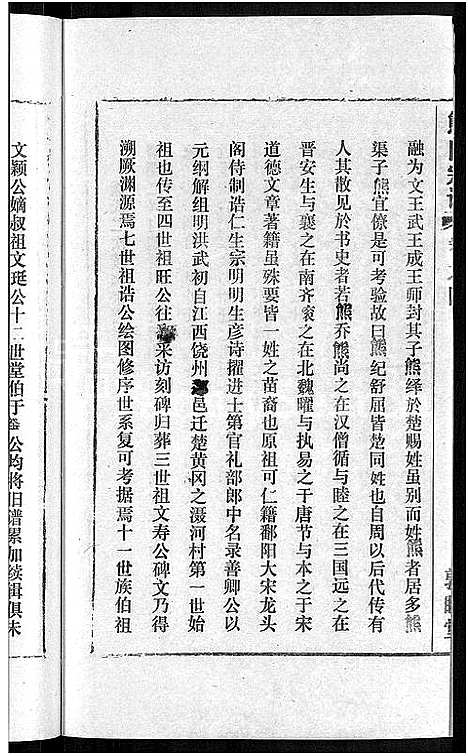 融为文王武王成王师封其子熊绎於楚赐姓虽别而姓熊者居多熊
渠子熊宜僚是可考验故曰熊纪舒屈皆楚同姓也自周以后代传有
人其散见於书史者若熊乔熊尚之在汉僧循与睦之在三国远之在
晋安生与襄之在南齐衮之在北魏曜与执易之于唐节与本之于宋
道德文章著籍虽殊要皆一姓之苗裔也原祖可仁籍鄱阳大宋龙头
阁侍制诰仁生宗明明生彦诗擢进士第官礼部郎中名录善卿公以
元纲解组明洪武初自江西饶州邑迁楚黄冈之滠河村第一世始
祖也传至四世祖旺公往采访刻碑归葬三世祖文寿公碑文乃得
溯厥渊源焉七世祖诰公绘图修序世系复可考据焉十一世族伯祖
文颖公嫡叔祖文珽公十二世堂伯于公均将旧谱累加续辑俱未